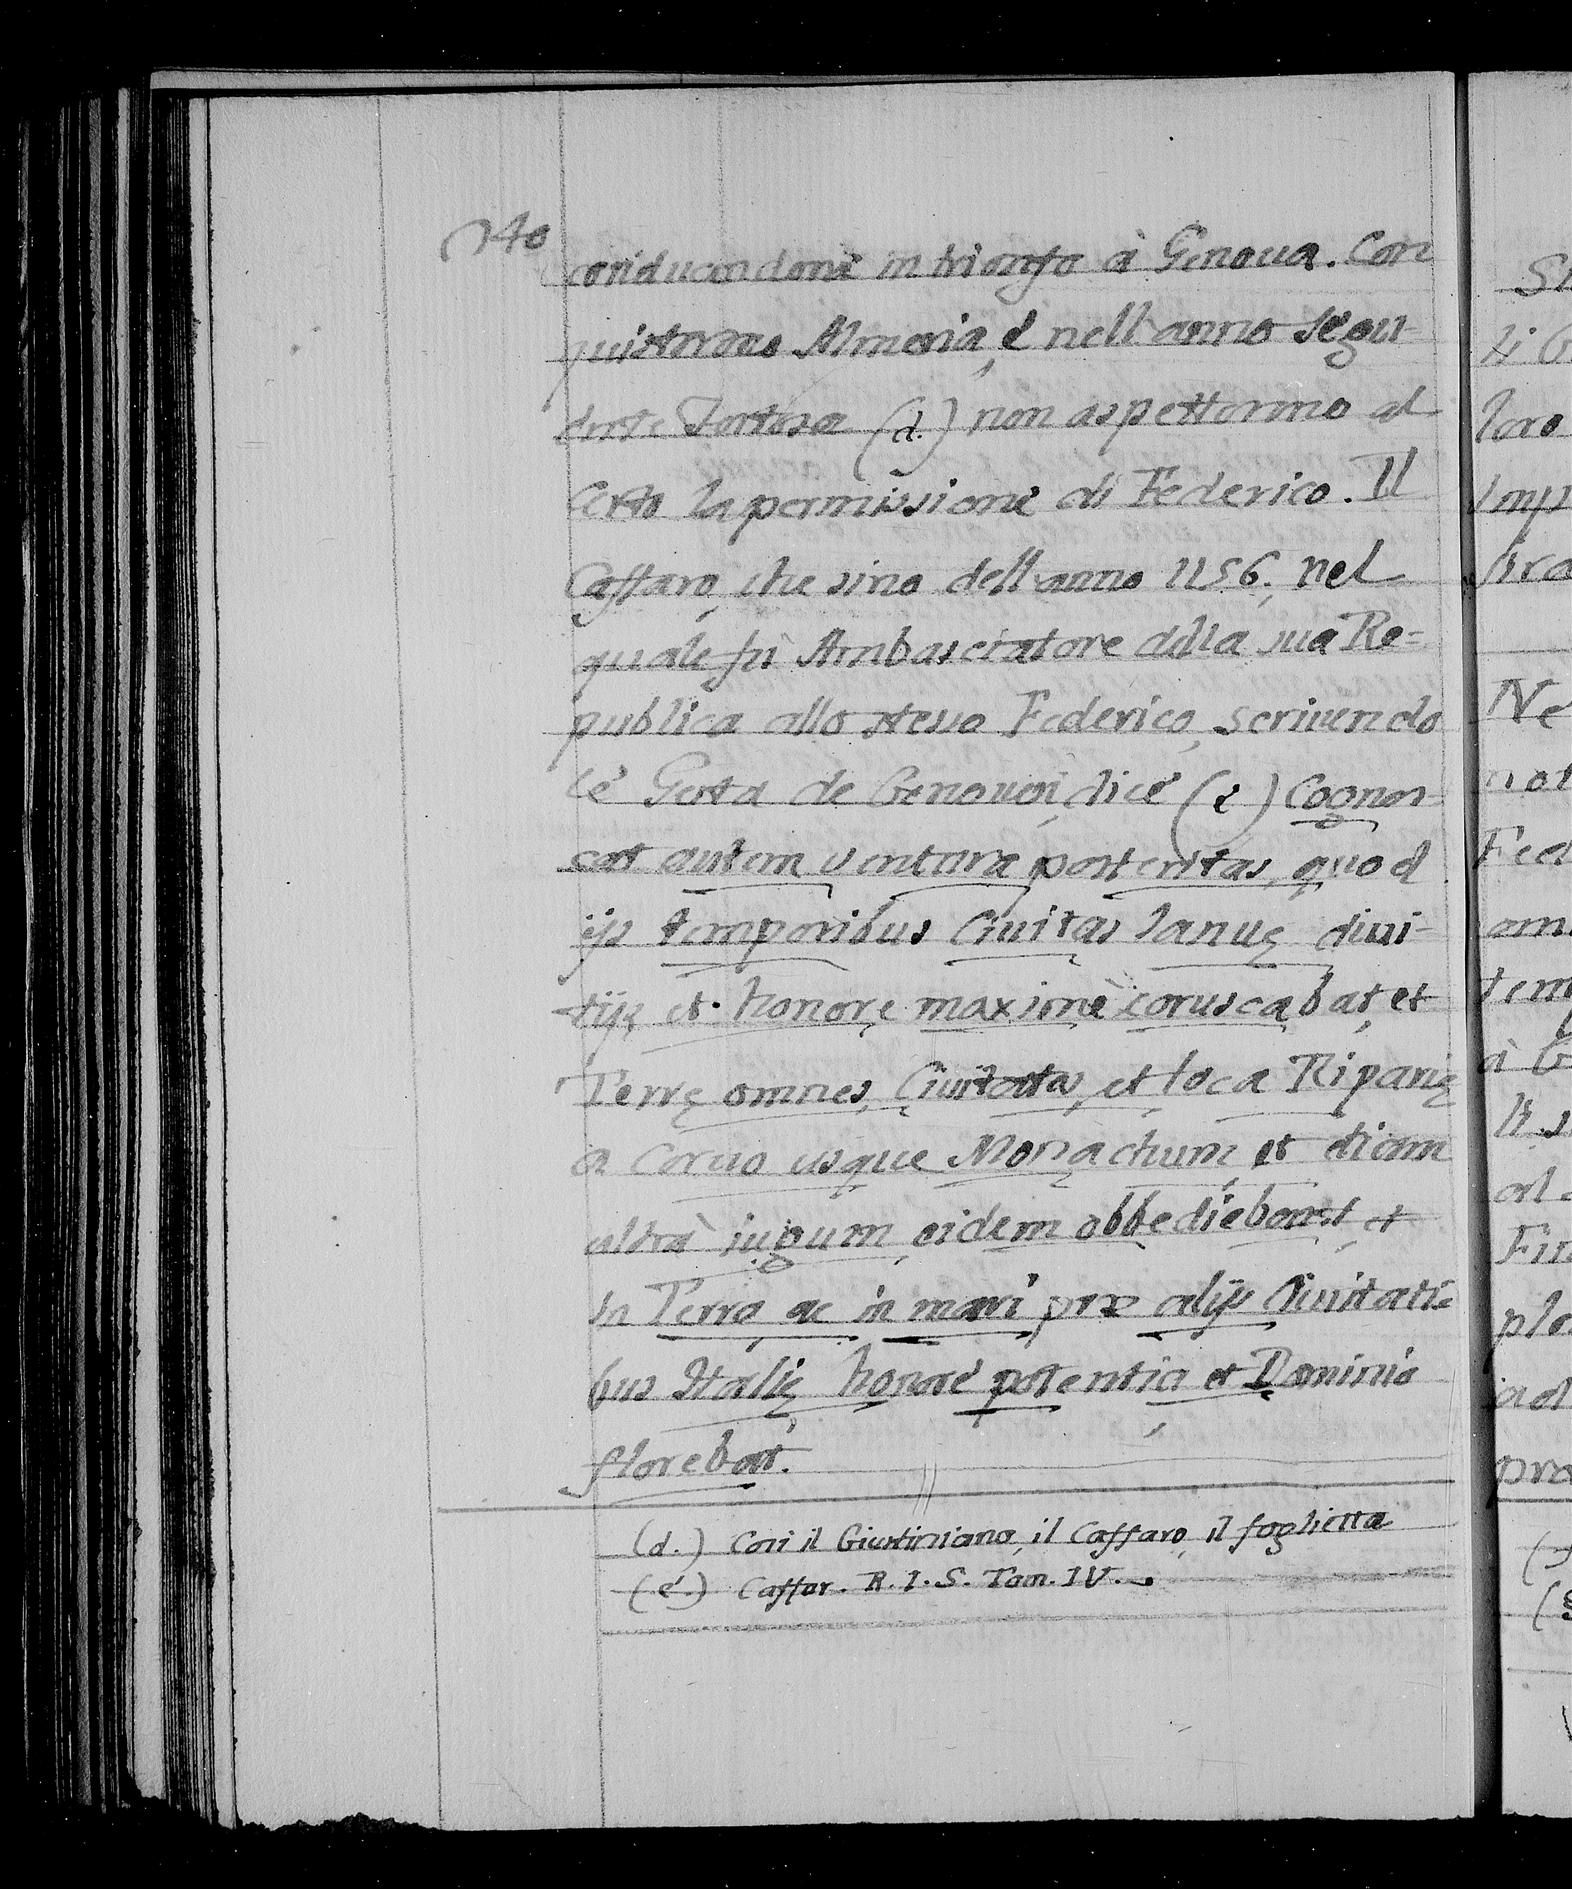 740
conducendone in trionfo à Genoua. Con
quistarono Almeria, è nell'anno segu-
ente Tortosa (d.) non aspettormo al
certo la permissione di Federico. Il
Caffaro, che sino dell'anno 1156, nel
quale fù Ambasciatore della sua Re=
publica allo stesso Federico, scriuendo
le Gesta de Genouesi, dice (e) Cognos-
cat autem ventura posteritas, quod
ijs temporibus Ciuitas Ianuę diui-
tijs et honore maximè coruscabat, et
Terrę omnes, Ciuitates, et loca Riparię
a Coruo usque Monachum, et etiam
ultrà iugum, eidem obbediebant, et
in Terra ac in mari prae alijs Ciuitati=
bus Italię, honore potentia et Dominio
florebat.
(d.) Cosi il Giustiniano, il Caffaro, il foglietta
(e.) Caffar. R. I. S. Tom. IV.